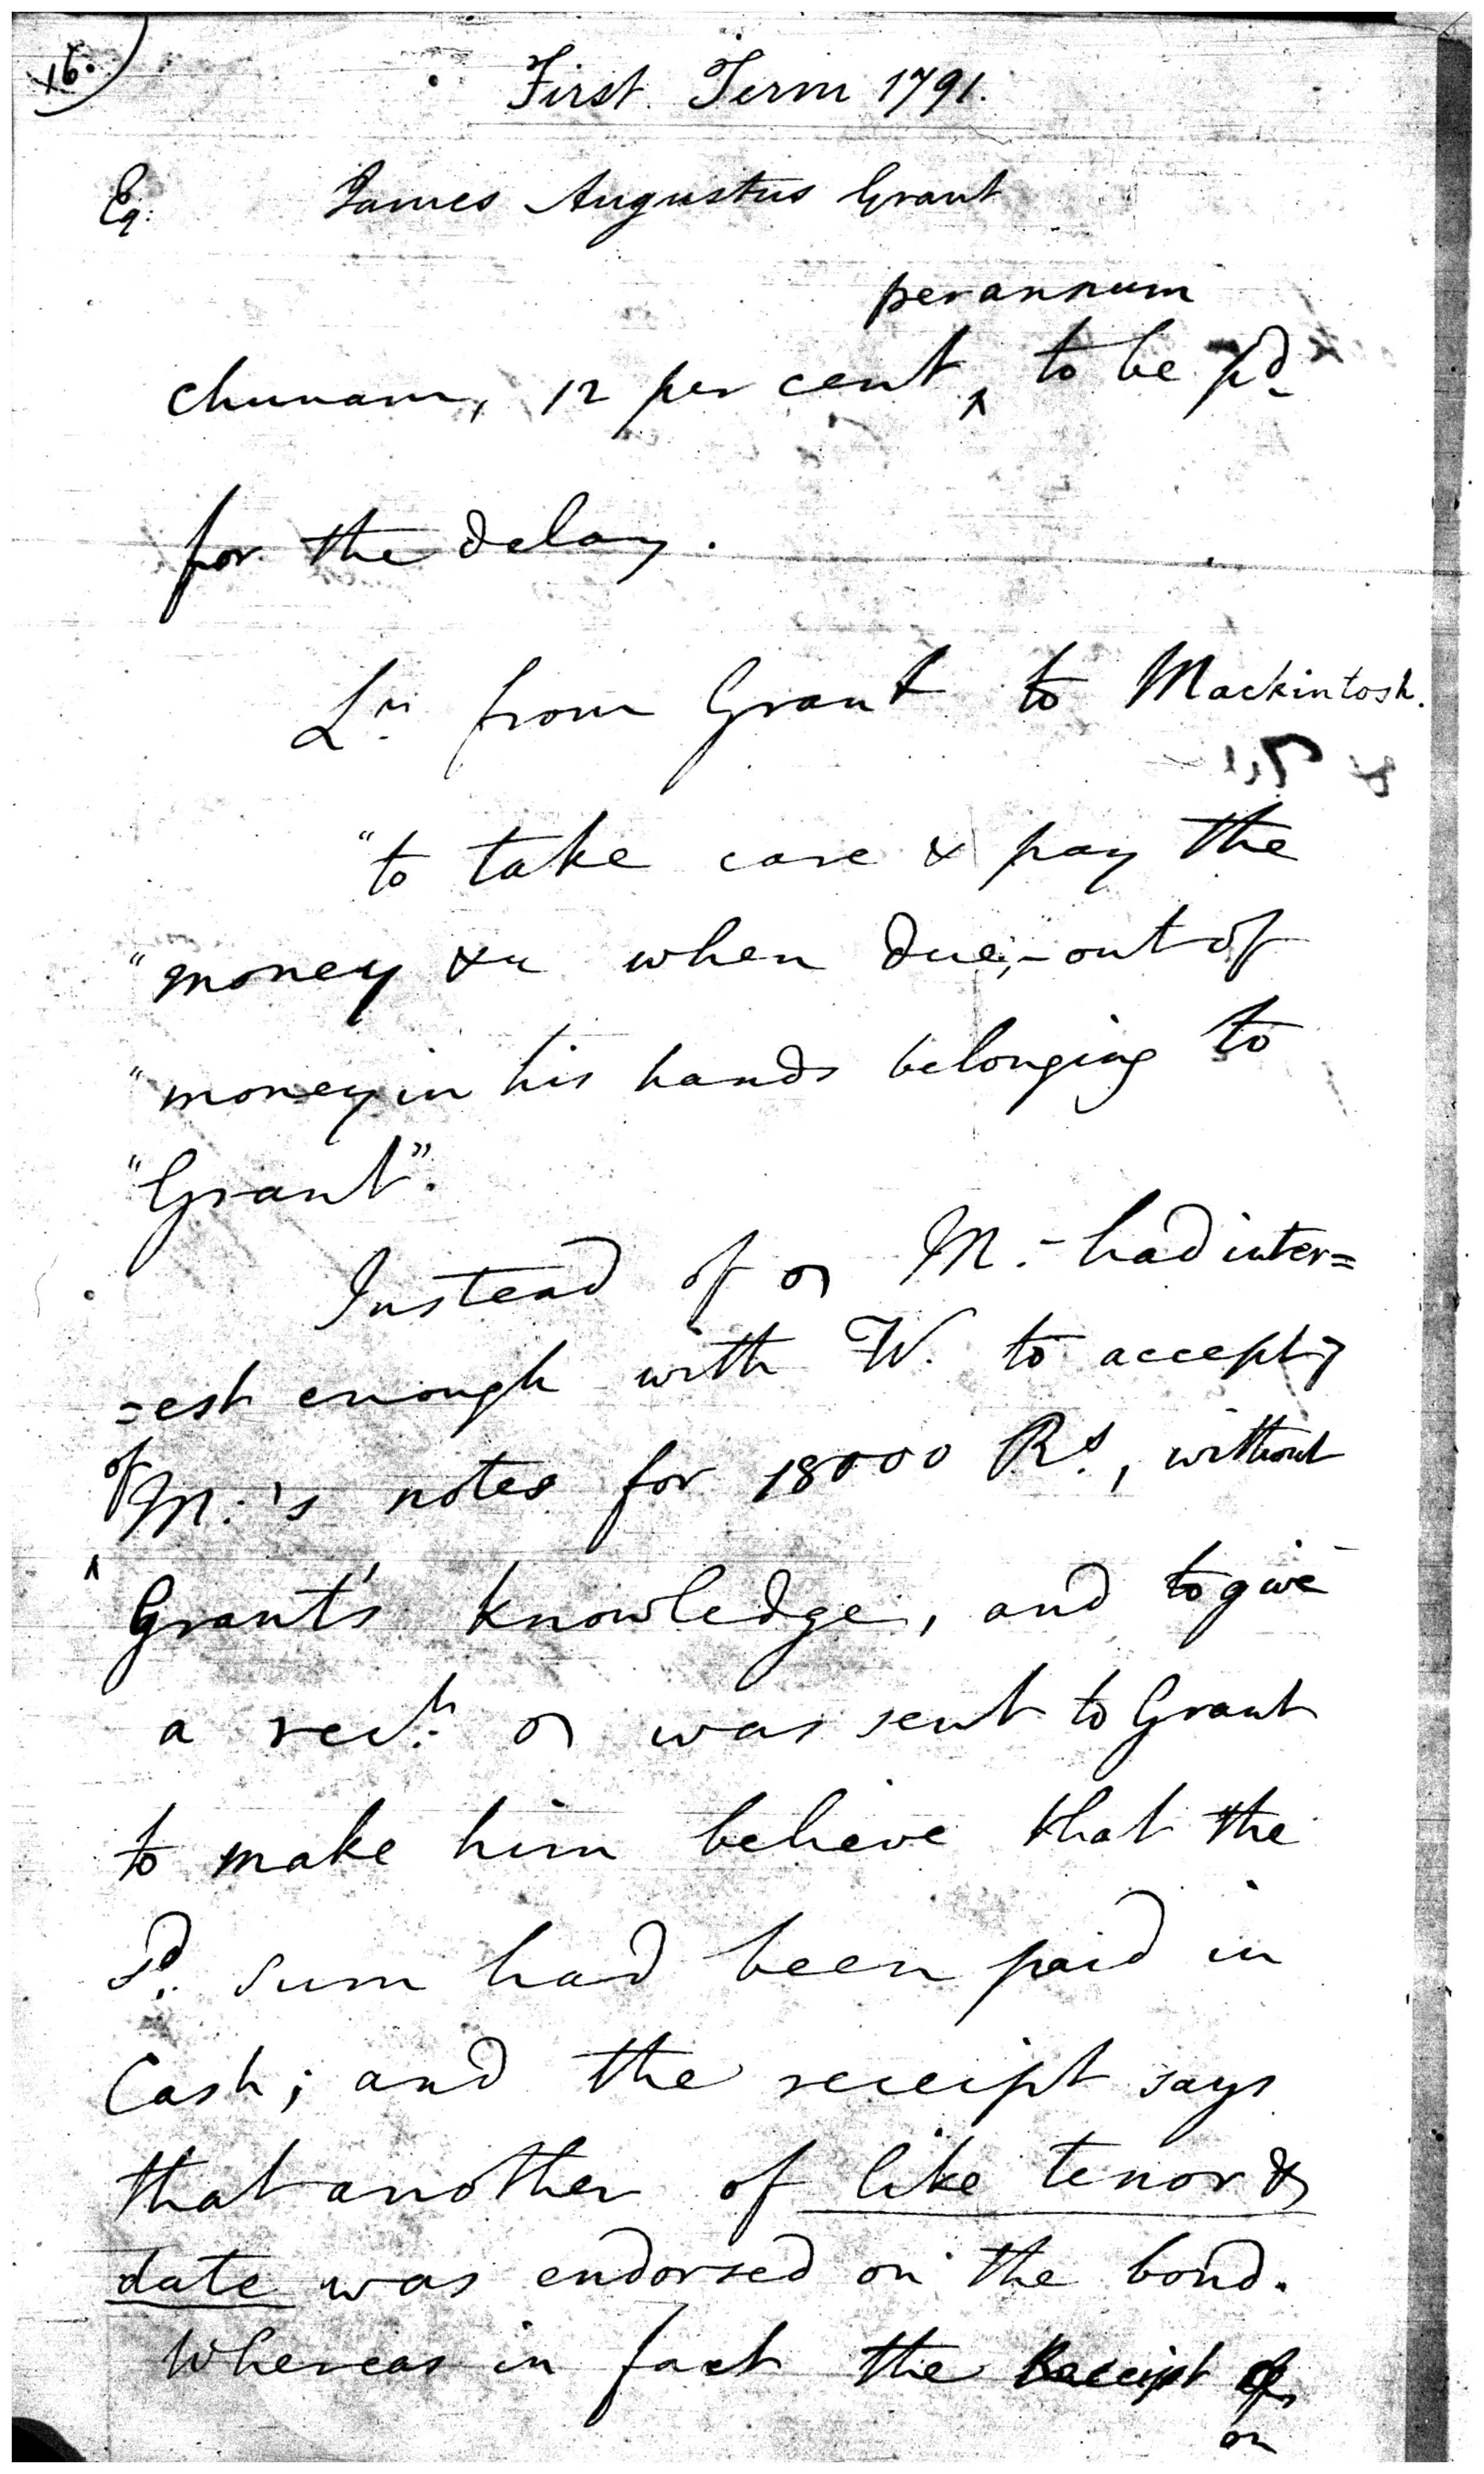 16.
First Term 1791.
Eq: James Augustus Grant
per annum
chunam, 12 per cent ‸ to be pd.
for the delay.
Lr. from Grant to Mackintosh.
"to take care & pay the
"money &c when due, - out of
"money in his hands belonging to
"Grant".
Instead of M.- had inter=
=est enough with W. to accept
of
M.'s notes for 18000 Rs., without
‸ Grant's knowledge, and to give
a rect. was sent to Grant
to make him believe that the
sd. sum had been paid in
Cash; and the receipt says
that another of like tenor &
date was endorsed on the bond.
Whereas in fact the Receipt
on